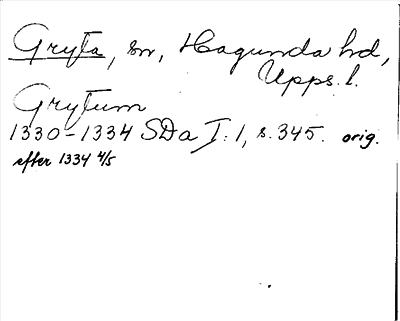 Gryta, sn, Hagunda hd,
Upps. l.
Grytum
1330-1334 SDa I: 1, s. 345. orig.
efter 1334 4/5